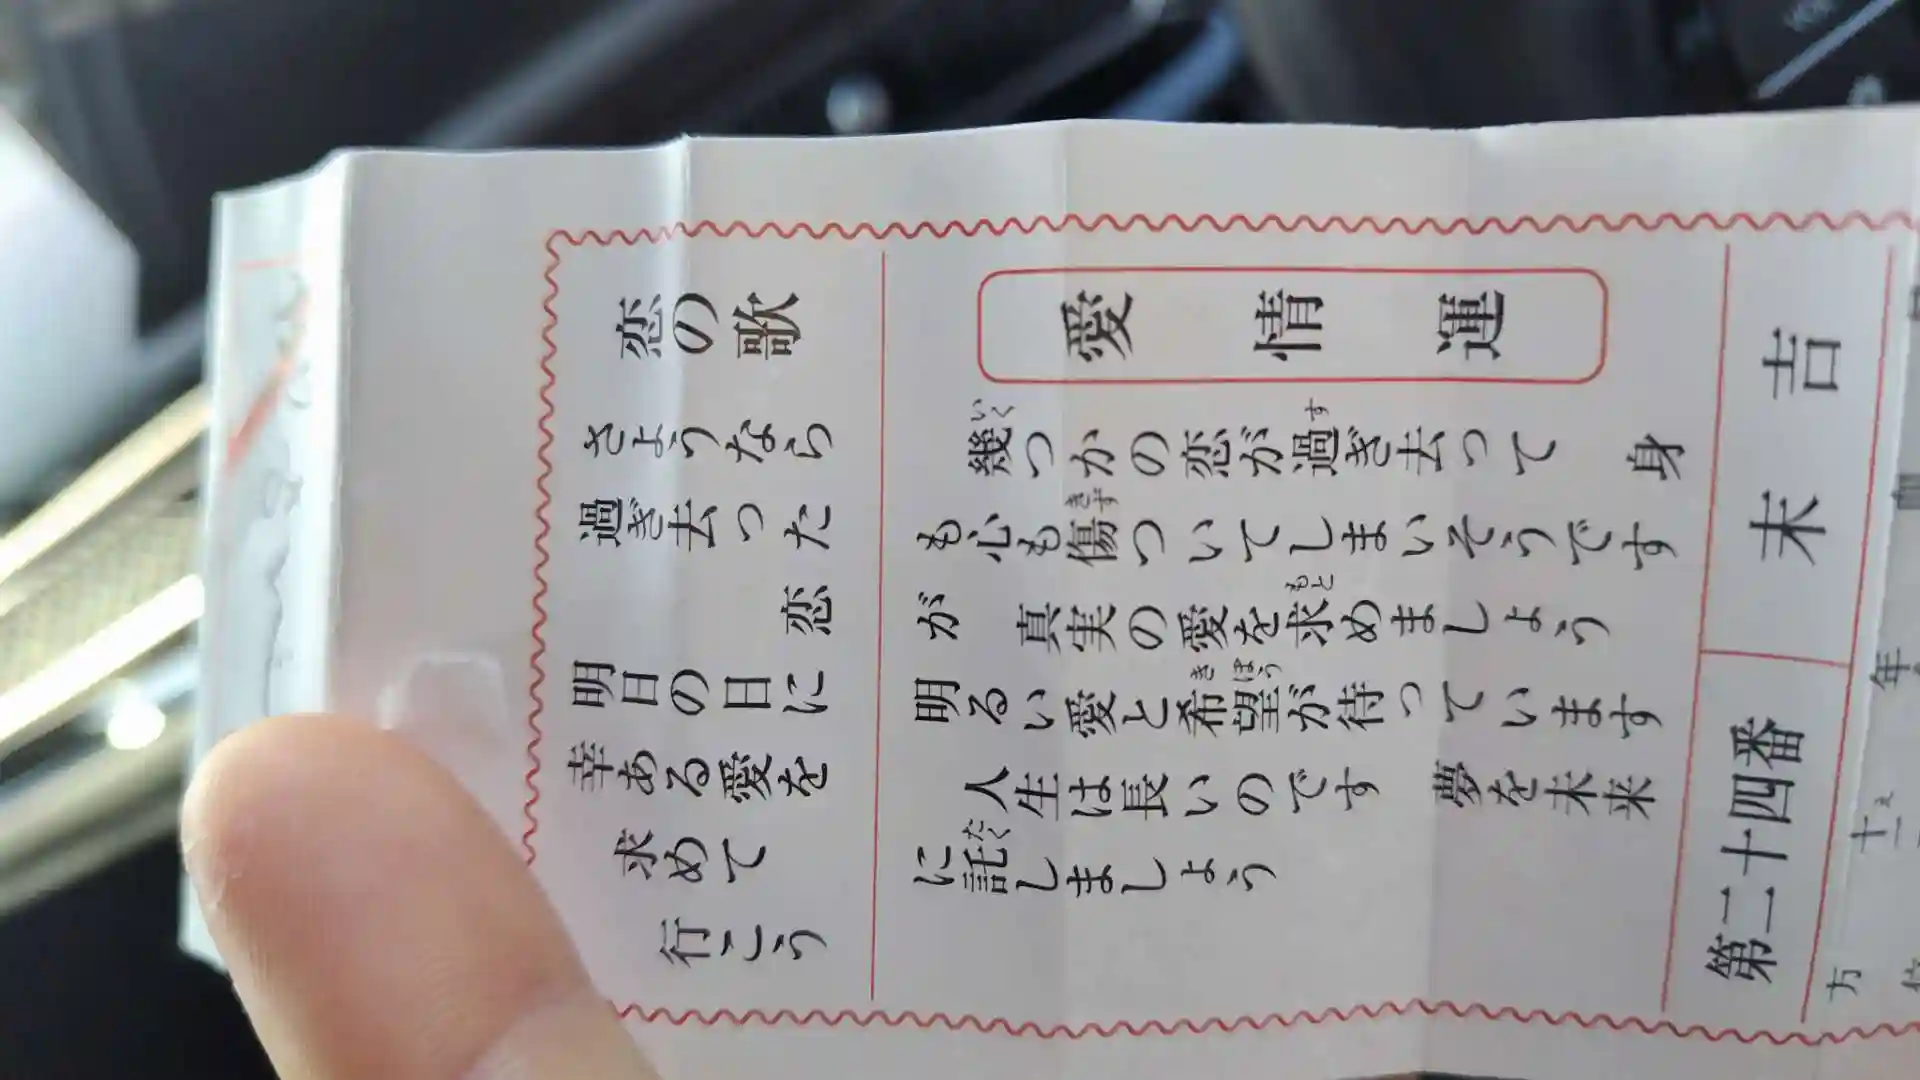 恋の歌
さようなら
過ぎ去った
恋
明日の日に
幸ある愛を
求めて
行こう
愛情運
幾つかの恋が過ぎ去って　身
も心も傷ついてしまいそうです
が　真実の愛を求めましょう
明るい愛と希望が待っています
人生は長いのです　夢を未来
に託しましょう
第二十四番
末吉
方
年